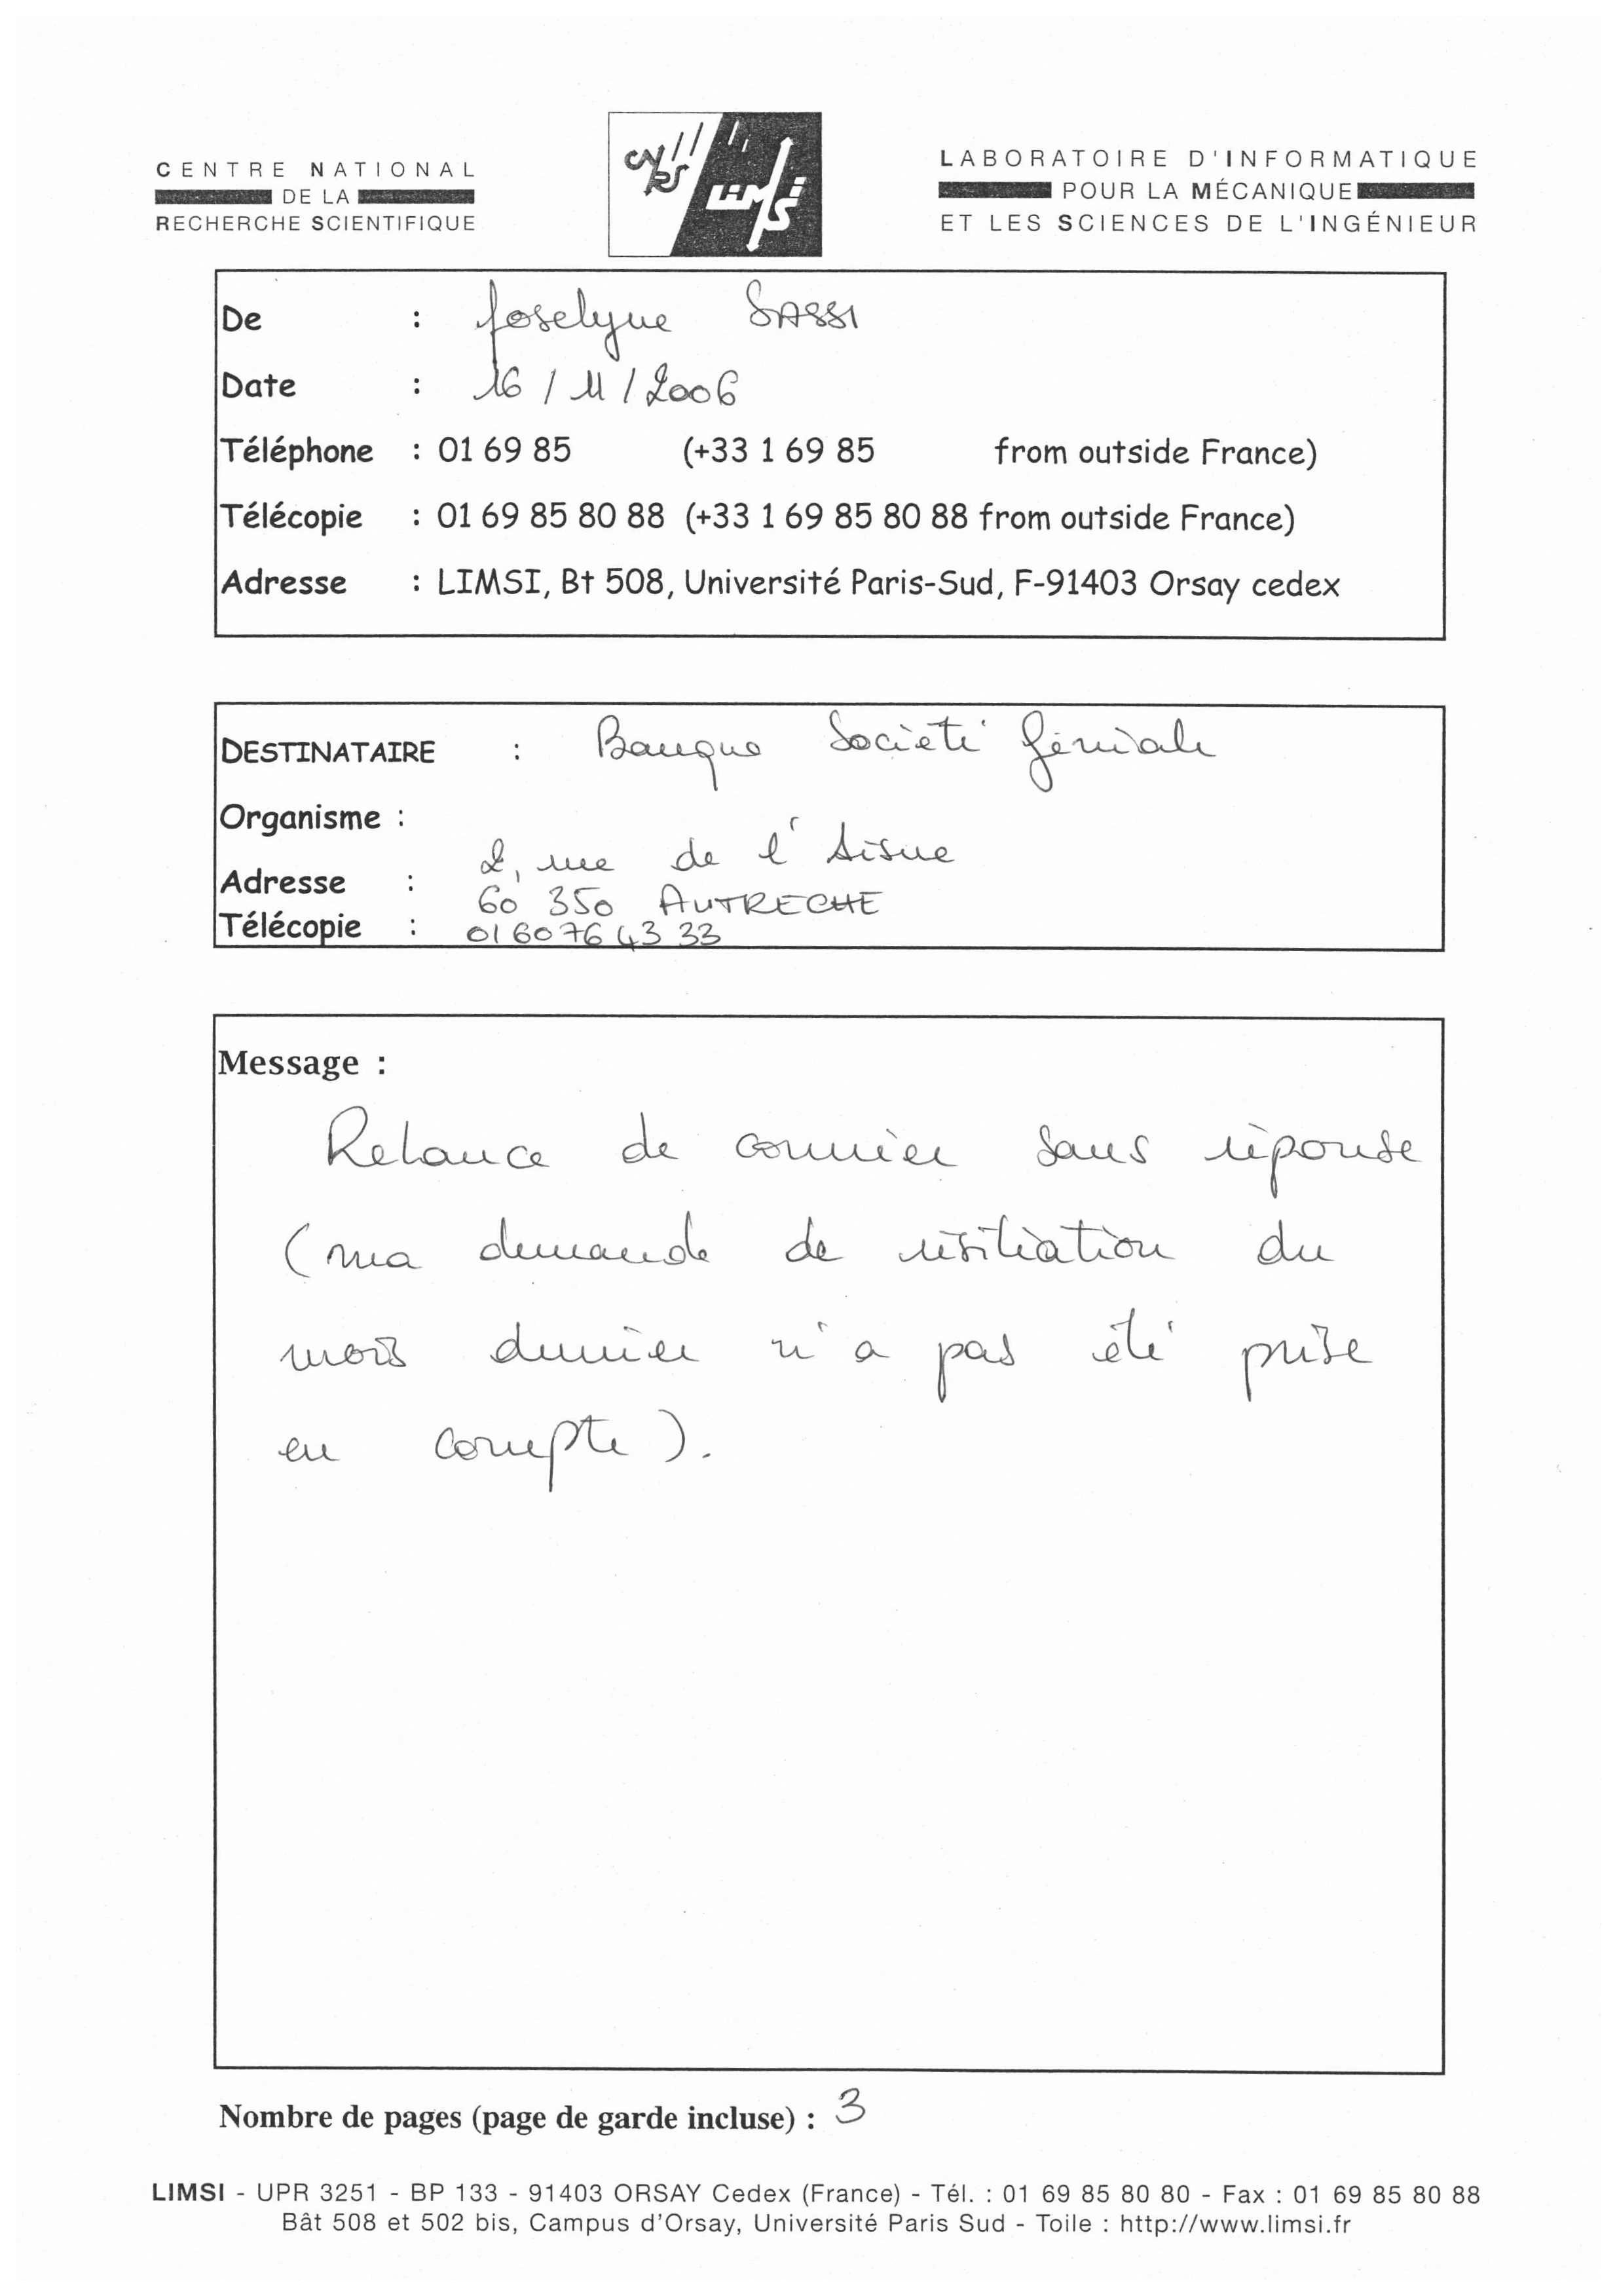 CENTRE NATIONAL
DE LA
RECHERCHE SCIENTIFIQUE
CNRS
LIMSI
LABORATOIRE D'INFORMATIQUE
POUR LA MÉCANIQUE
ET LES SCIENCES DE L'INGÉNIEUR
De : Joselyne SASSI
Date : 16/11/2006
Téléphone : 01 69 85 (+33 1 69 85 from outside France)
Télécopie : 01 69 85 80 88 (+33 1 69 85 80 88 from outside France)
Adresse : LIMSI, Bt 508, Université Paris-Sud, F-91403 Orsay cedex
DESTINATAIRE : Banque Société Géniale
Organisme :
Adresse : 2, rue de l'Aisne
60 350 AUTRECHE
Télécopie : 01 60 76 43 33
Message :
Relance de courrier sans réponse
(ma demande de résiliation du
mois dernier n'a pas été prise
en compte).
Nombre de pages (page de garde incluse) : 3
LIMSI - UPR 3251 - BP 133 - 91403 ORSAY Cedex (France) - Tél. : 01 69 85 80 80 - Fax : 01 69 85 80 88
Bât 508 et 502 bis, Campus d'Orsay, Université Paris Sud - Toile : http://www.limsi.fr